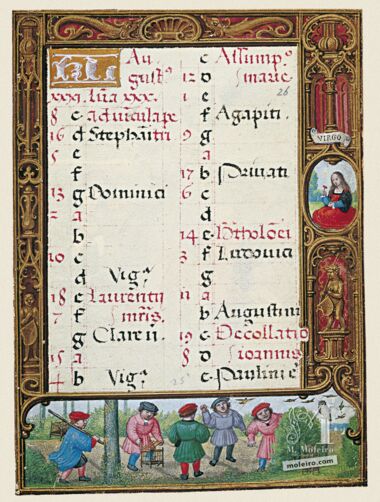 KL Au
gustꝰ
xxxi. Lũa xxx.
8 c ad uincula pe
16 d Stephani
5 e
f
13 g Dominici
2 a
b
10 c
d Vigᵃ
18 e Laurentii
7 f mr̃is.
g Clare ũ.
15 a
4 b Vigᵃ
25
c Assump.º
12 D marie
1 e 26
f Agapiti.
9 g
a
17 b Priuati
6 c
d
14 e Btholoẽi
3 f Ludouici
g
11 a
b Augustini
19 c Decollatio
8 D Ioannis
e Pauline
VIRGO
M. Moleiro
moleiro.com